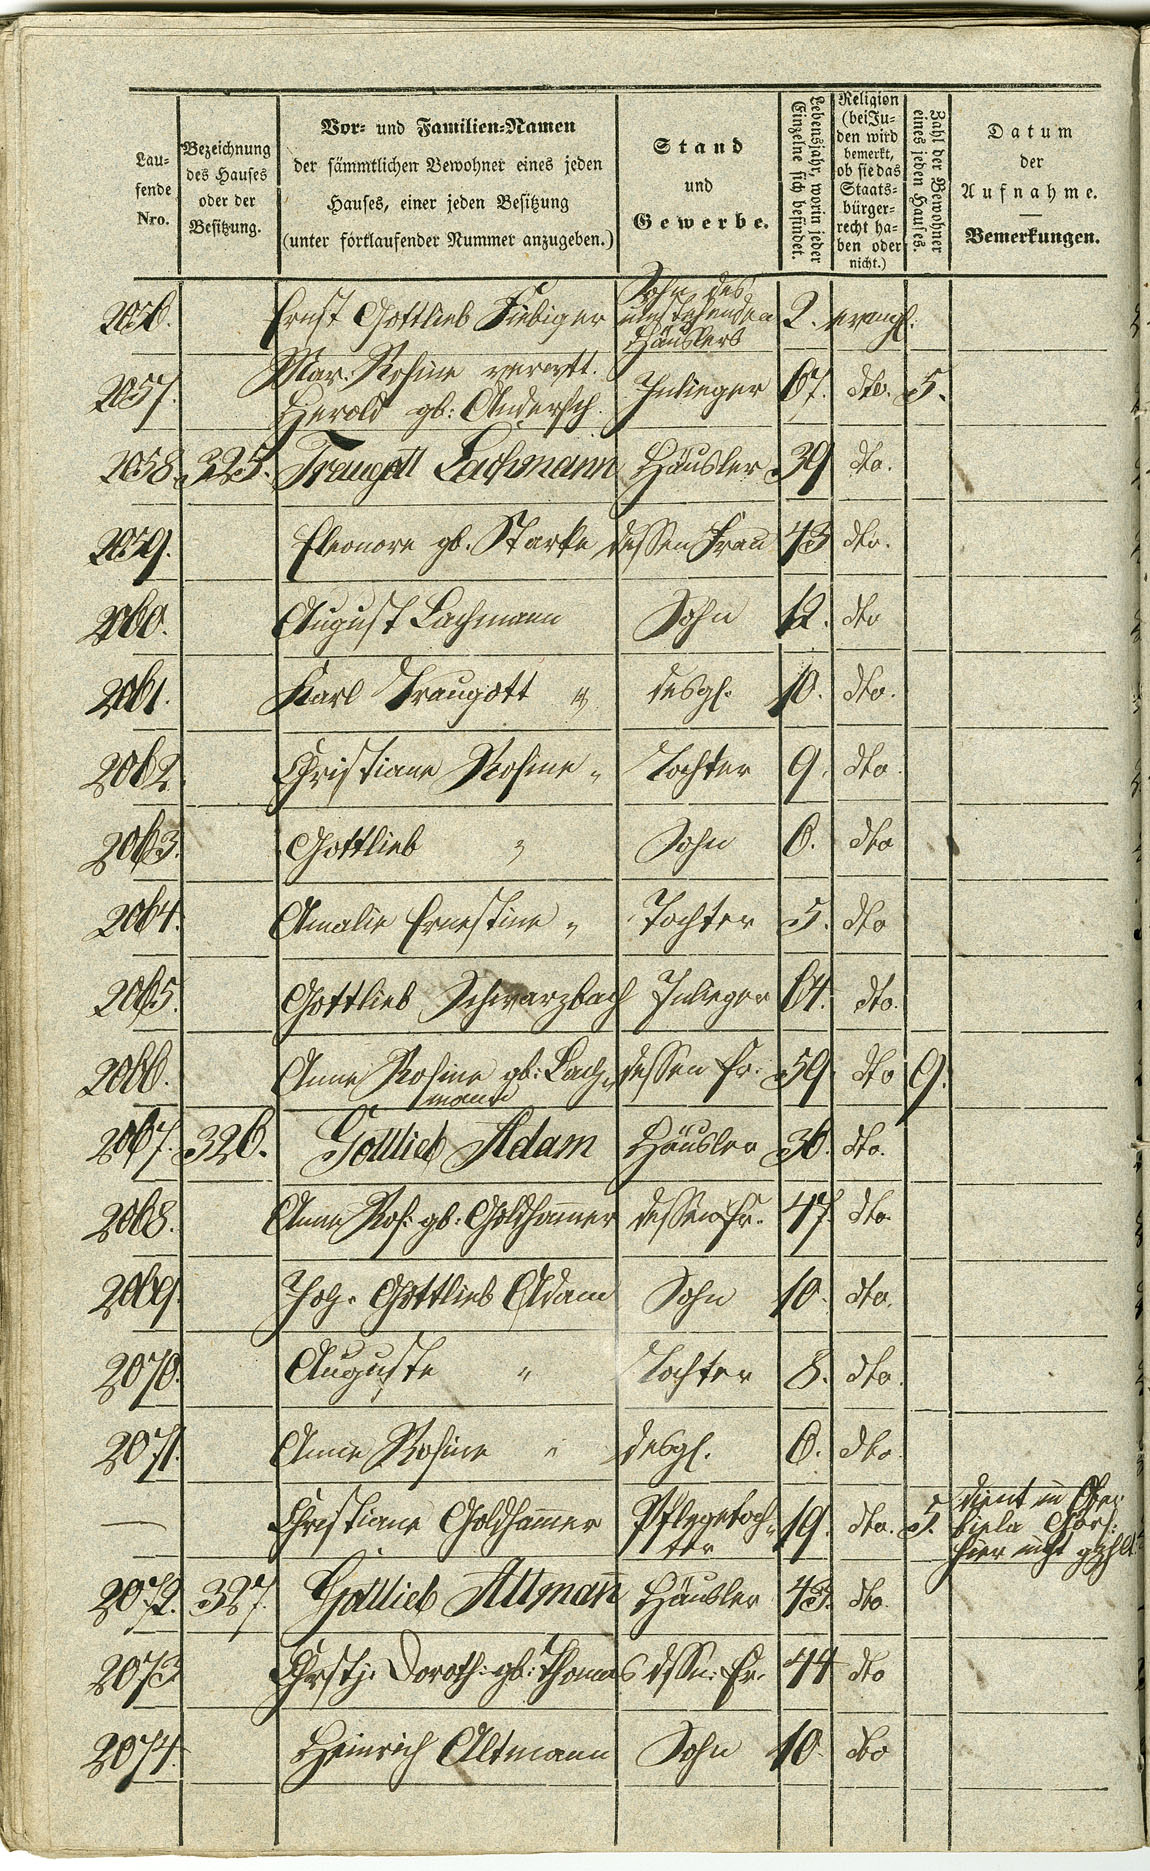 Lau-
fende
Nro.
Bezeichnung
des Hauses
oder der
Besitzung.
Vor- und Familien-Namen
der sämmtlichen Bewohner eines jeden
Hauses, einer jeden Besitzung
(unter fortlaufender Nummer anzugeben.)
Stand
und
Gewerbe.
Lebensjahr, worin jeder
Einzelne sich befindet.
Religion
(bei Ju-
den wird
bemerkt,
ob sie das
Staats-
bürger-
recht ha-
ben oder
nicht.)
Zahl der Bewohner
eines jeden Hauses.
Datum
der
Aufnahme.
Bemerkungen.
2056. Ernst Gottlieb Fiebiger Sohn des
umstehenden
Häuslers 2. evangl.
2057. Mar. Rosine verwtt.
Herold gb: Andersch. Inlieger 67. dto. 5.
2058. 325. Traugott Lachmann Häusler 39 dto.
2059. Eleonore gb. Starke dessen Frau 43 dto.
2060. August Lachmann Sohn 12. dto
2061. Karl Traugott " desgl. 10. dto.
2062. Christiane Rosine " Tochter 9. dto.
2063. Gottlieb " Sohn 6. dto
2064. Amalie Ernestine " Tochter 5. dto
2065. Gottlieb Schwarzbach Inlieger 64. dto.
2066. Anne Rosine gb: Lach-
mann dessen Fr. 59. dto 9.
2067. 326. Gottlieb Adam Häusler 36. dto.
2068. Anne Ros: gb: Goldhammer dessen Fr. 47. dto.
2069. Joh. Gottlieb Adam Sohn 10. dto.
2070. Auguste " Tochter 8. dto.
2071. Anne Rosine " desgl. 6. dto.
— Christiane Goldhammer Pflegetoch-
ter 19. dto. 5. dient in Ober
biela
hier nicht gezählt
2072. 327. Gottlieb Altmann Häusler 43. dto.
2073. Christ. Doroth: gb: Thomas dssn: Fr. 44 dto
2074. Heinrich Altmann Sohn 10. dto